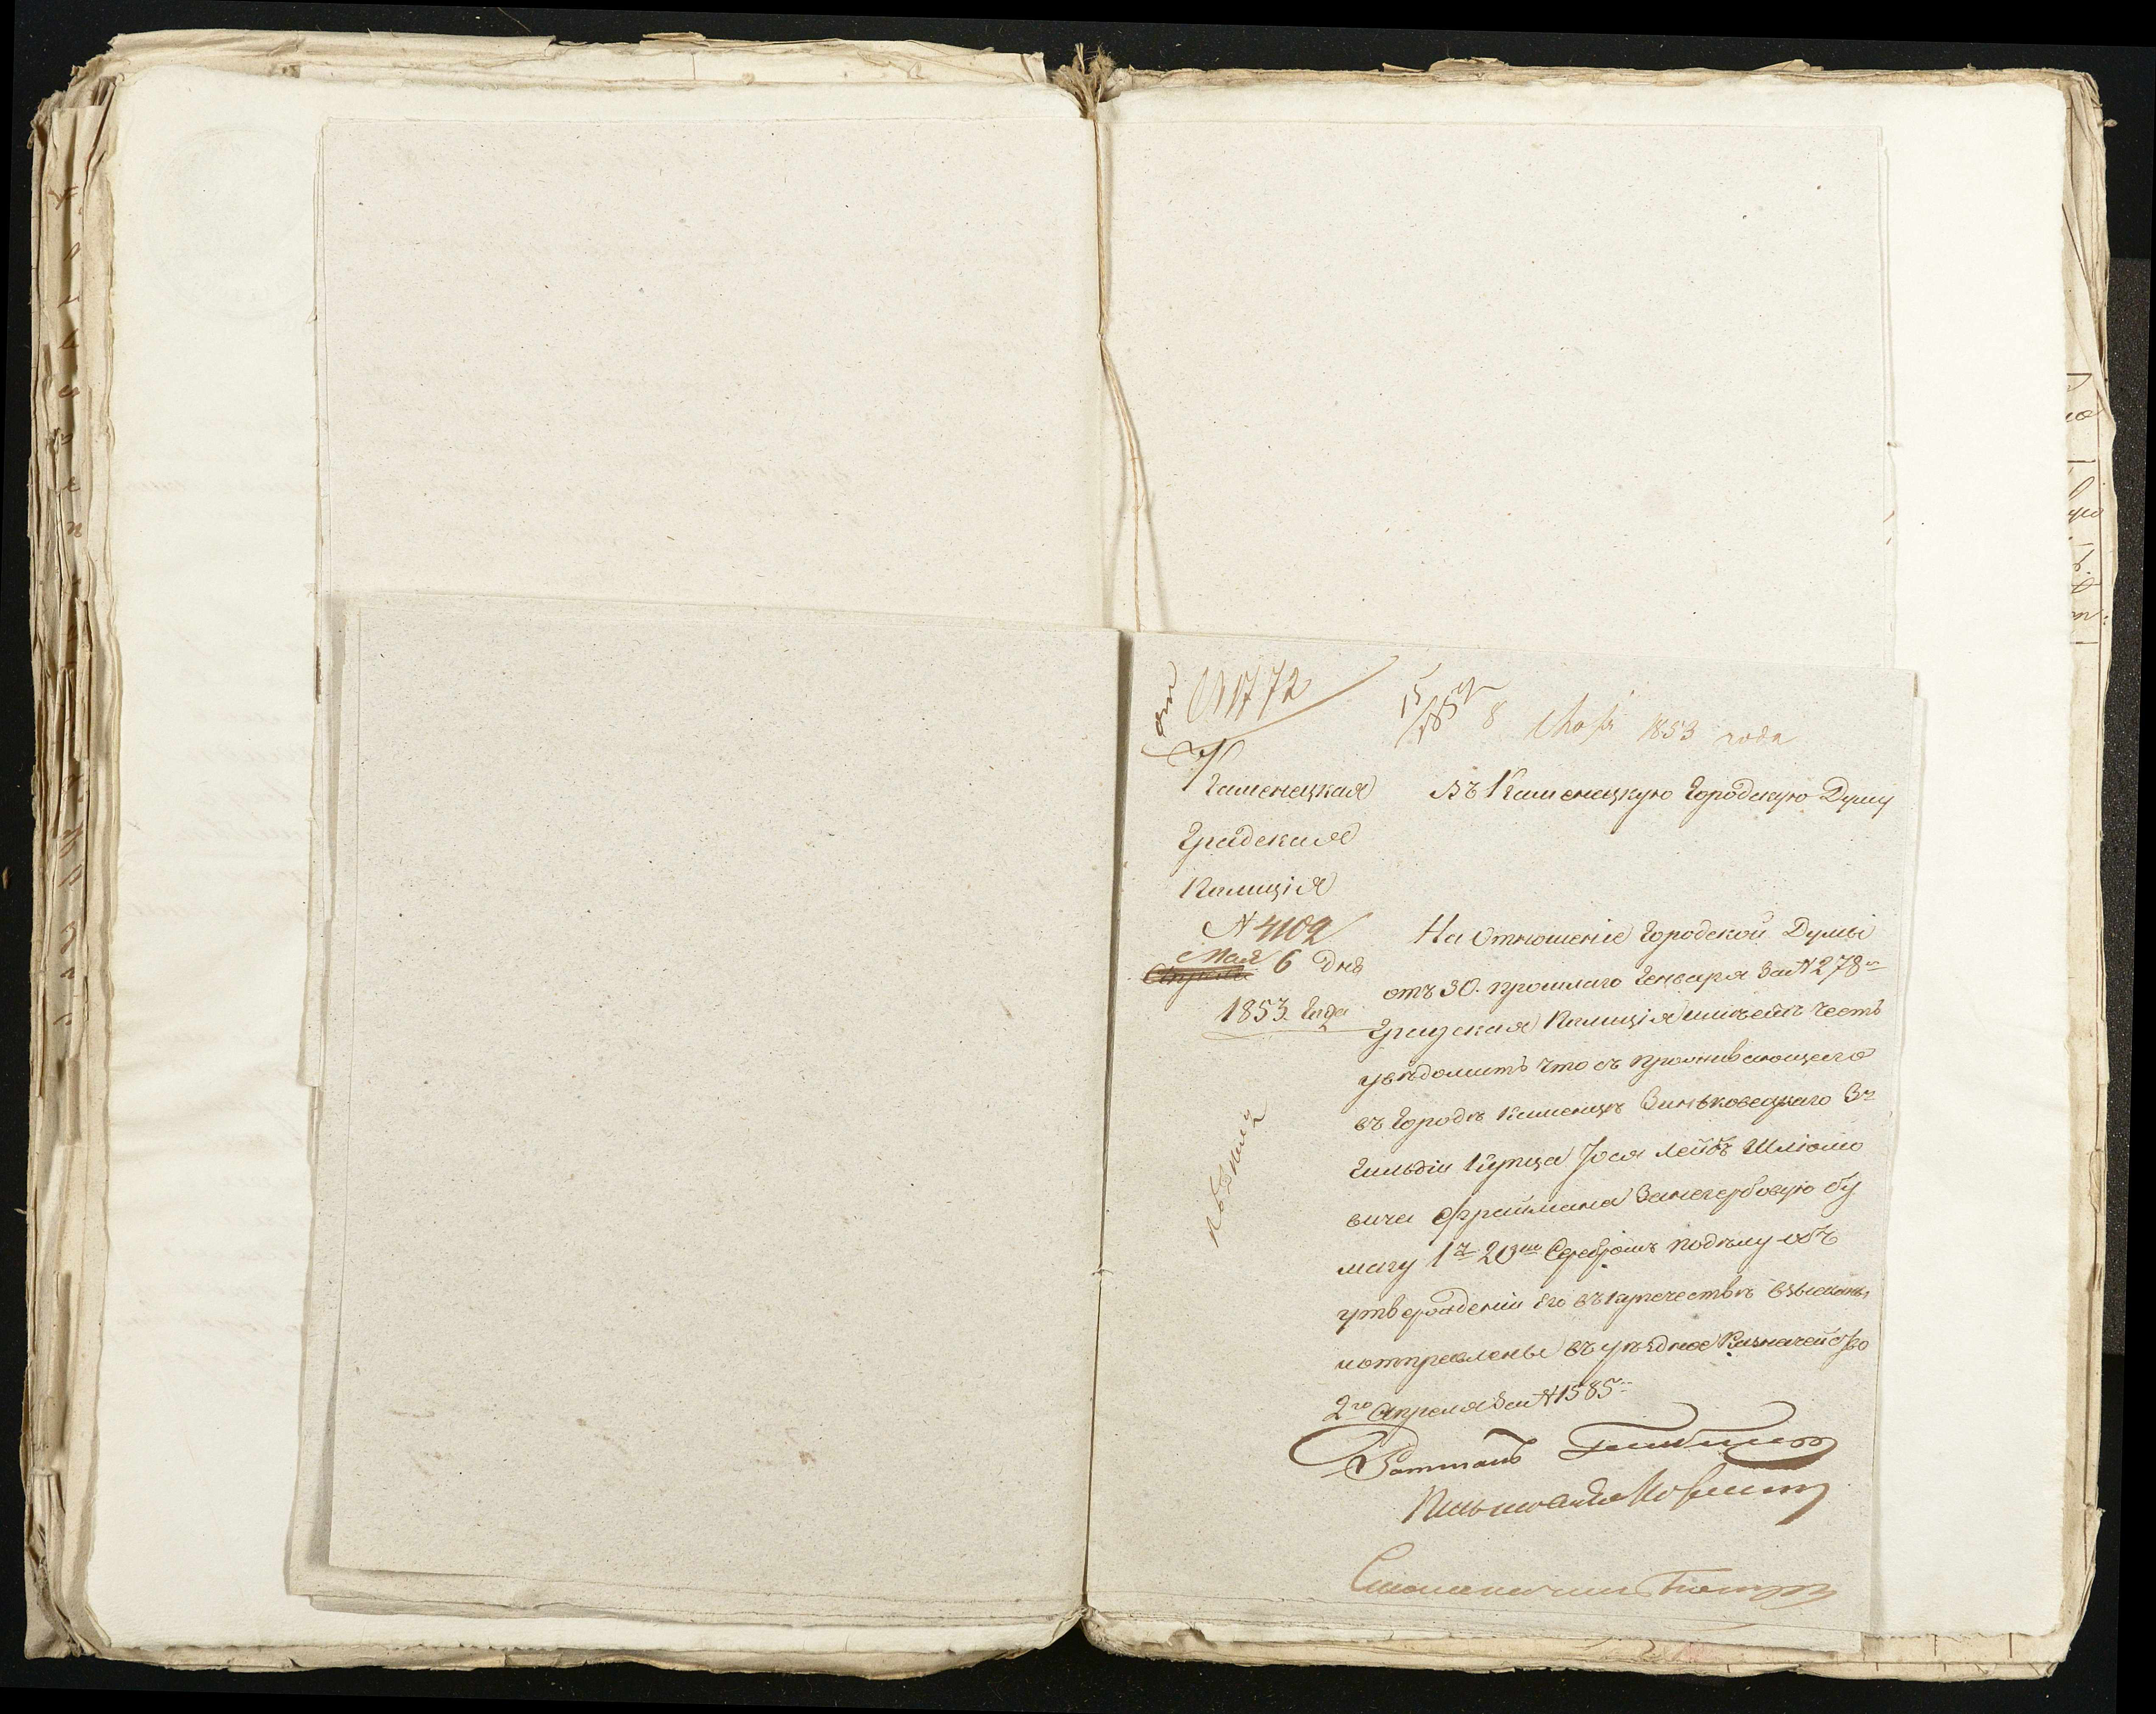 N 1772
8 Мая 1853 года
Каменецкая
Градская
Полиція
N 4102
Мая 6 дня
1853 Года
Въ Каменецкую Городскую Думу
На Отношеніе Городской Думы
отъ 30. прошлаго Генваря за N 278
Градская Полиція имѣетъ честь
увѣдомить что съ проживающего
въ Городѣ Каменцѣ Зиньковецкаго 3й
Гильдіи Купца Йося Лейбъ Шлiомо
вича Фраймана За негербовую бу
магу 1 р 20 Серебромъ по дѣлу объ
утвержденіи Его въ купечествѣ взысканы
и отправлены въ уѣздное Казначейство
2го Апреля За N 1585